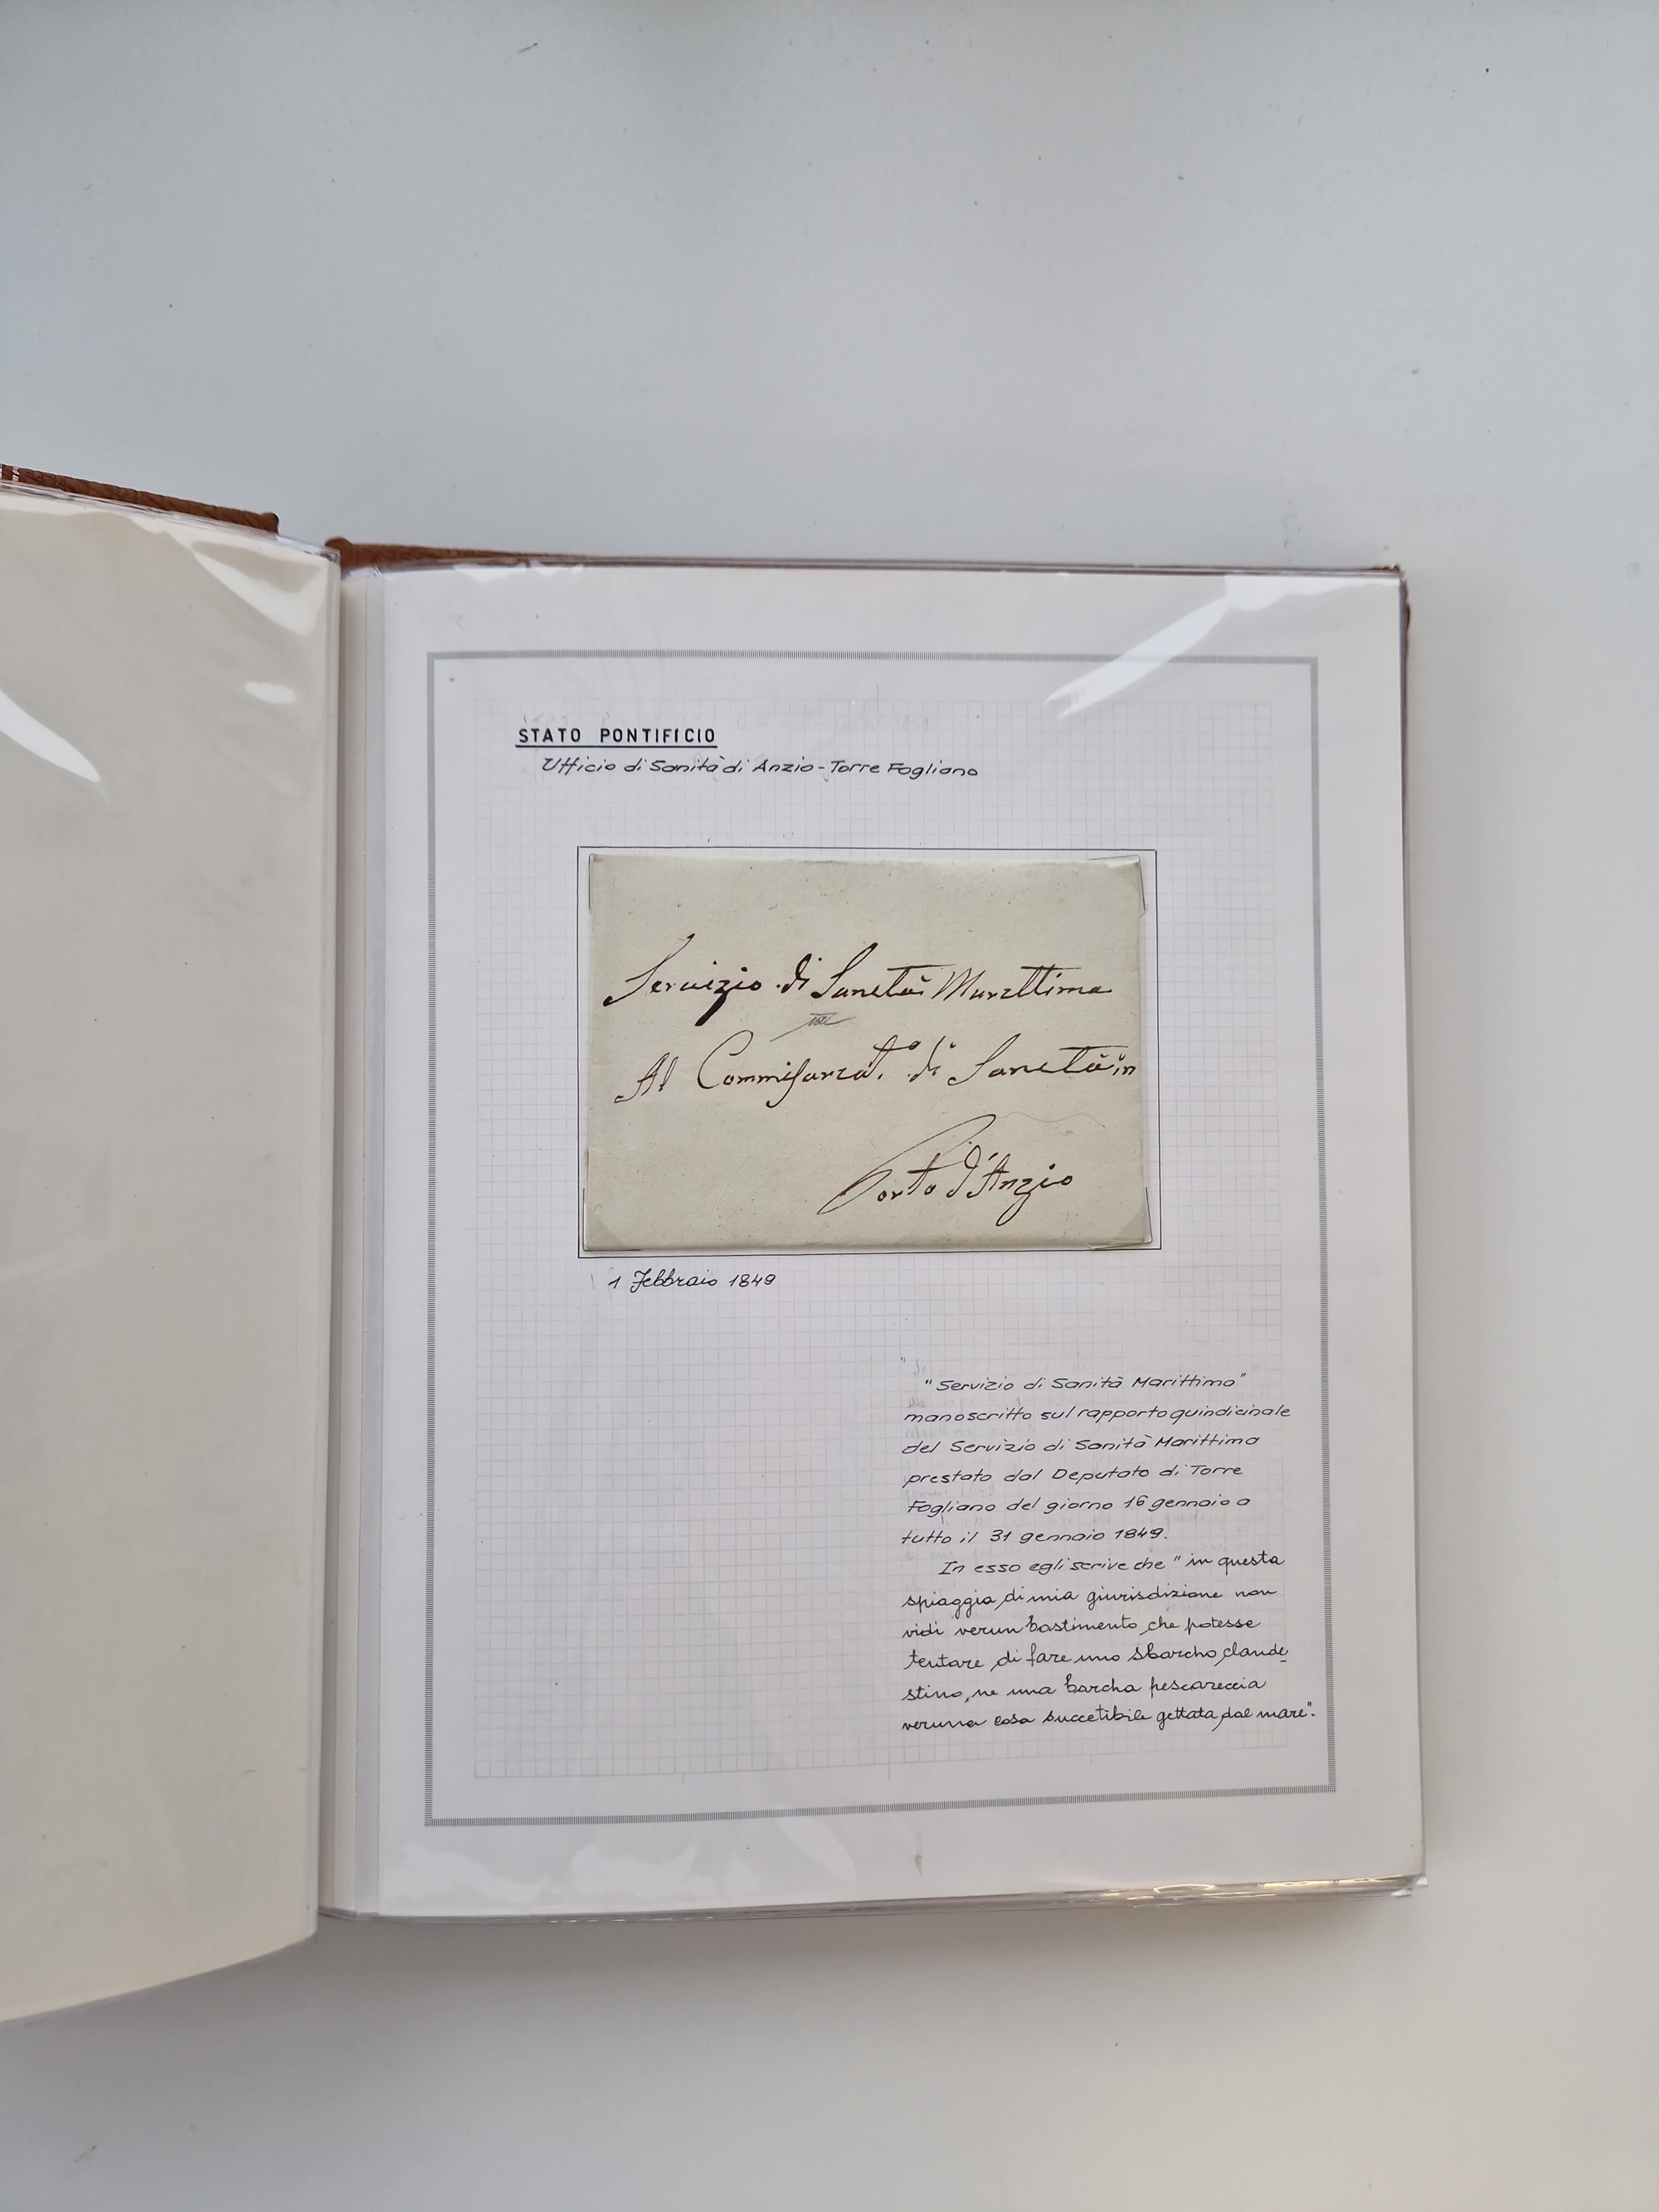 STATO PONTIFICIO
Ufficio di Sanità di Anzio - Torre Fogliano
Servizio di Sanetà Marittima
Al Commissariat.° di Sanetà in
Porto d'Anzio
1 Febbraio 1849
"Servizio di Sanità Marittima"
manoscritto sul rapporto quindicinale
del Servizio di Sanità Marittima
prestato dal Deputato di Torre
Fogliano del giorno 16 gennaio a
tutto il 31 gennaio 1849.
In esso egli scrive che "in questa
spiaggia, di mia giurisdizione non
vidi verun bastimento, che potesse
tentare, di fare uno sbarcho, clande
stino, ne una barcha pescareccia
veruna cosa succetibile gettata, dal mare".